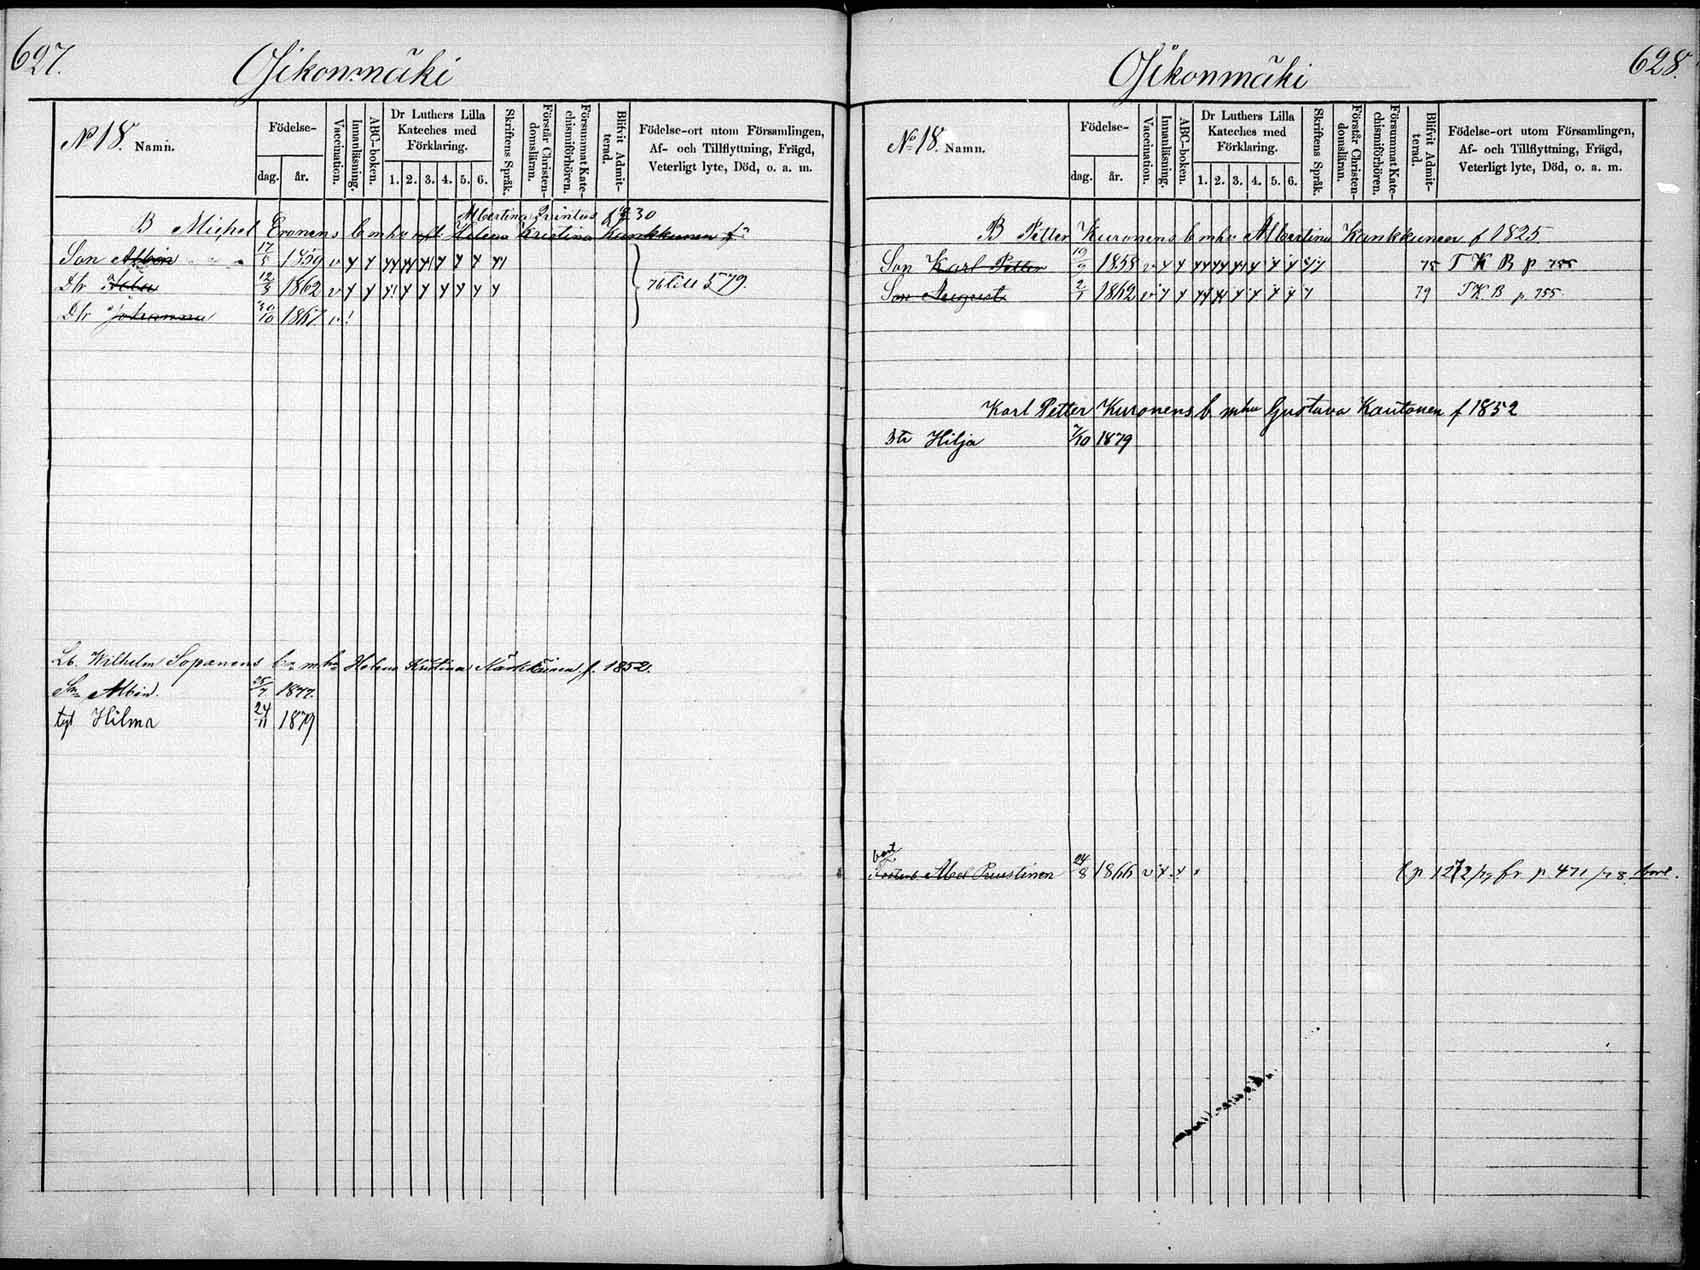 627.
Oikonmäki
No 18. Namn.
Födelse-
dag. år.
Vaccination.
Innanläsning.
ABC-boken.
Dr Luthers Lilla
Kateches med
Förklaring.
1. 2. 3. 4. 5. 6.
Skriftens Språk.
Förstår Christen-
domsläran.
Försummat Kate-
chismiförhören.
Blifvit Admit-
terad.
Födelse-ort utom Församlingen,
Af- och Tillflyttning, Frägd,
Veterligt lyte, Död, o. a. m.
Albertina
B Michel b m hu Helena Kristina Kunkkunen f
Son Albin 17/5 1859 v
Dr 12/3 1862 v
Dr Johanna 30/10 1867 v
76 till 579.
Lb. Wilhelm Sopanens b m hu Helena Kristina f. 1852.
Sn Albin. 25/7 1877.
Hilma 24/11 1879
628.
Oikonmäki
No 18. Namn.
Födelse-
dag. år.
Vaccination.
Innanläsning.
ABC-boken.
Dr Luthers Lilla
Kateches med
Förklaring.
1. 2. 3. 4. 5. 6.
Skriftens Språk.
Förstår Christen-
domsläran.
Försummat Kate-
chismiförhören.
Blifvit Admit-
terad.
Födelse-ort utom Församlingen,
Af- och Tillflyttning, Frägd,
Veterligt lyte, Död, o. a. m.
B Petter Kuronens b m hu Albertina Kunkkunen f 1825
Son Karl Petter 1858 v 75 T K B p 755
Son August 2/1 1862 v 79 T K B p. 755.
Karl Petter Kuronens b m hu Gustava Kautonen f 1852
Dtr Hilja 7/10 1879
bort
Abel Puustinen 24/8 1866 v fr p. 471